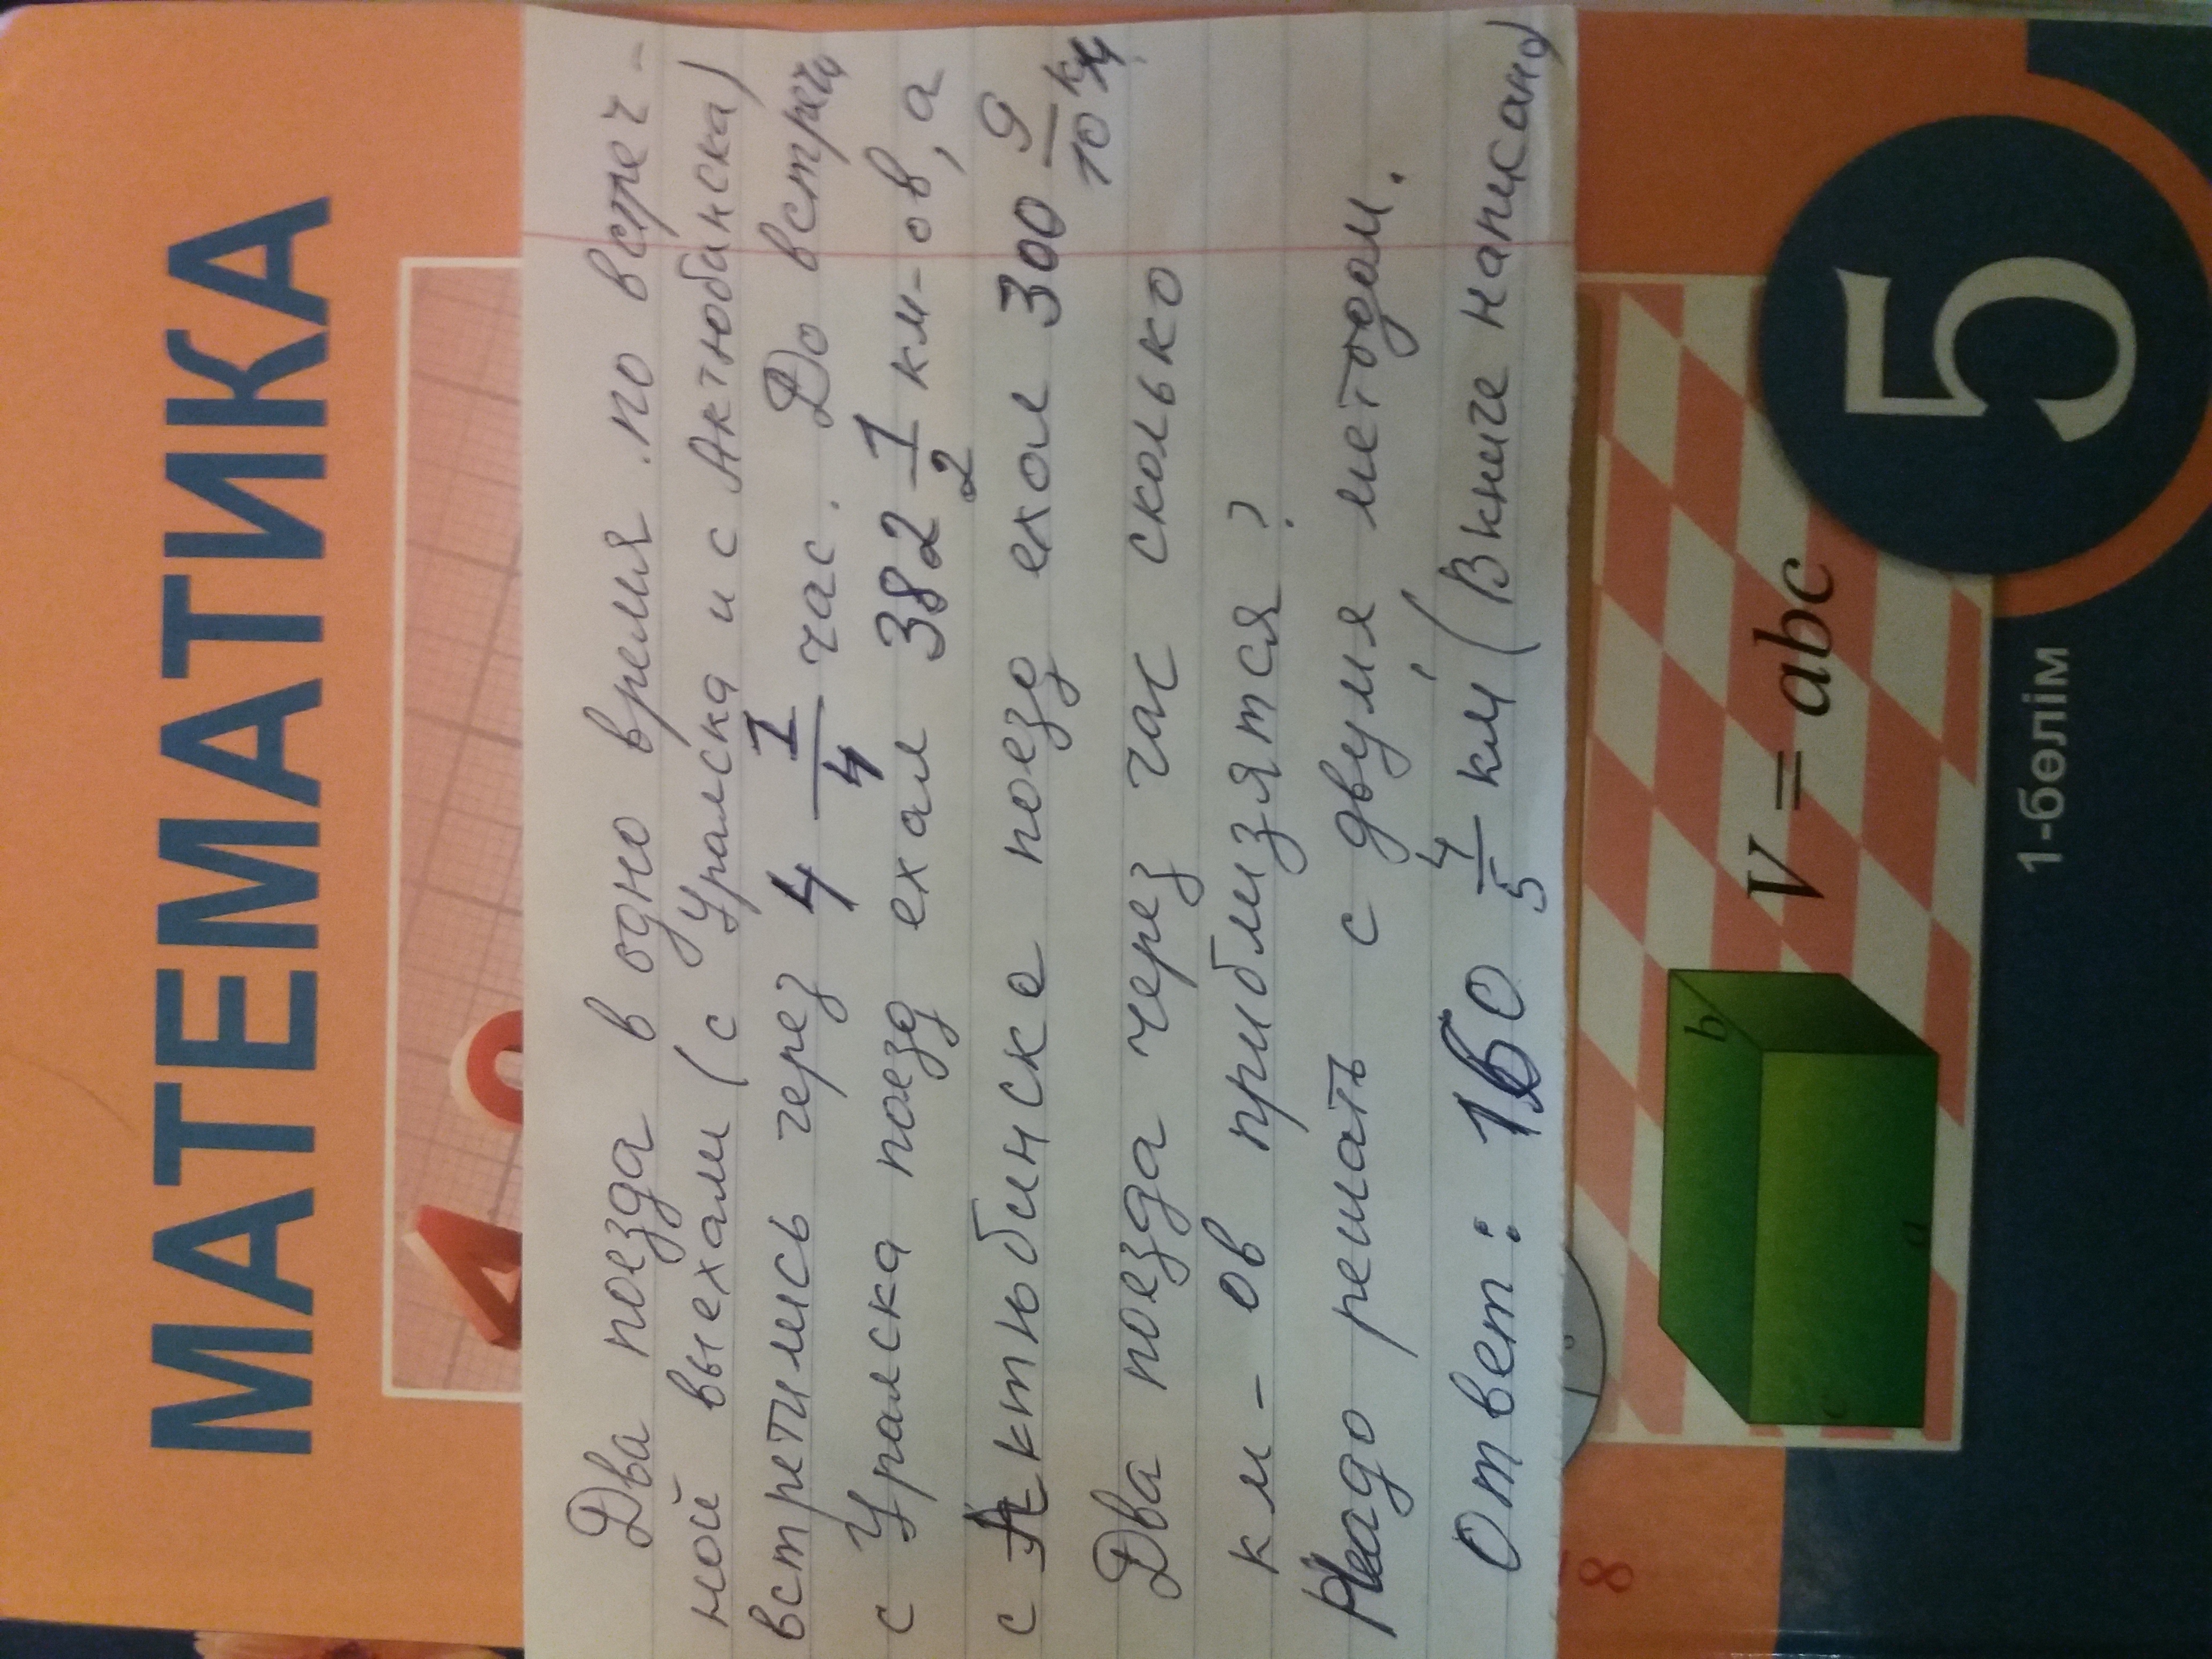 МАТЕМАТИКА
Два поезда в одно время по встреч-
ной выехали (с Уральска и с Актюбинска)
встретились через 4 1/4 час. До встречи
с Уральска поезд ехал 382 1/2 км-ов, а
с Актюбинске поезд ехал 300 9/10 км.
Два поезда через час сколько
км-ов приблизятся?
Надо решать с двумя методом.
Ответ: 160 4/5 км (В книге написано)
8
b
a
c
V = abc
5
1-бөлім